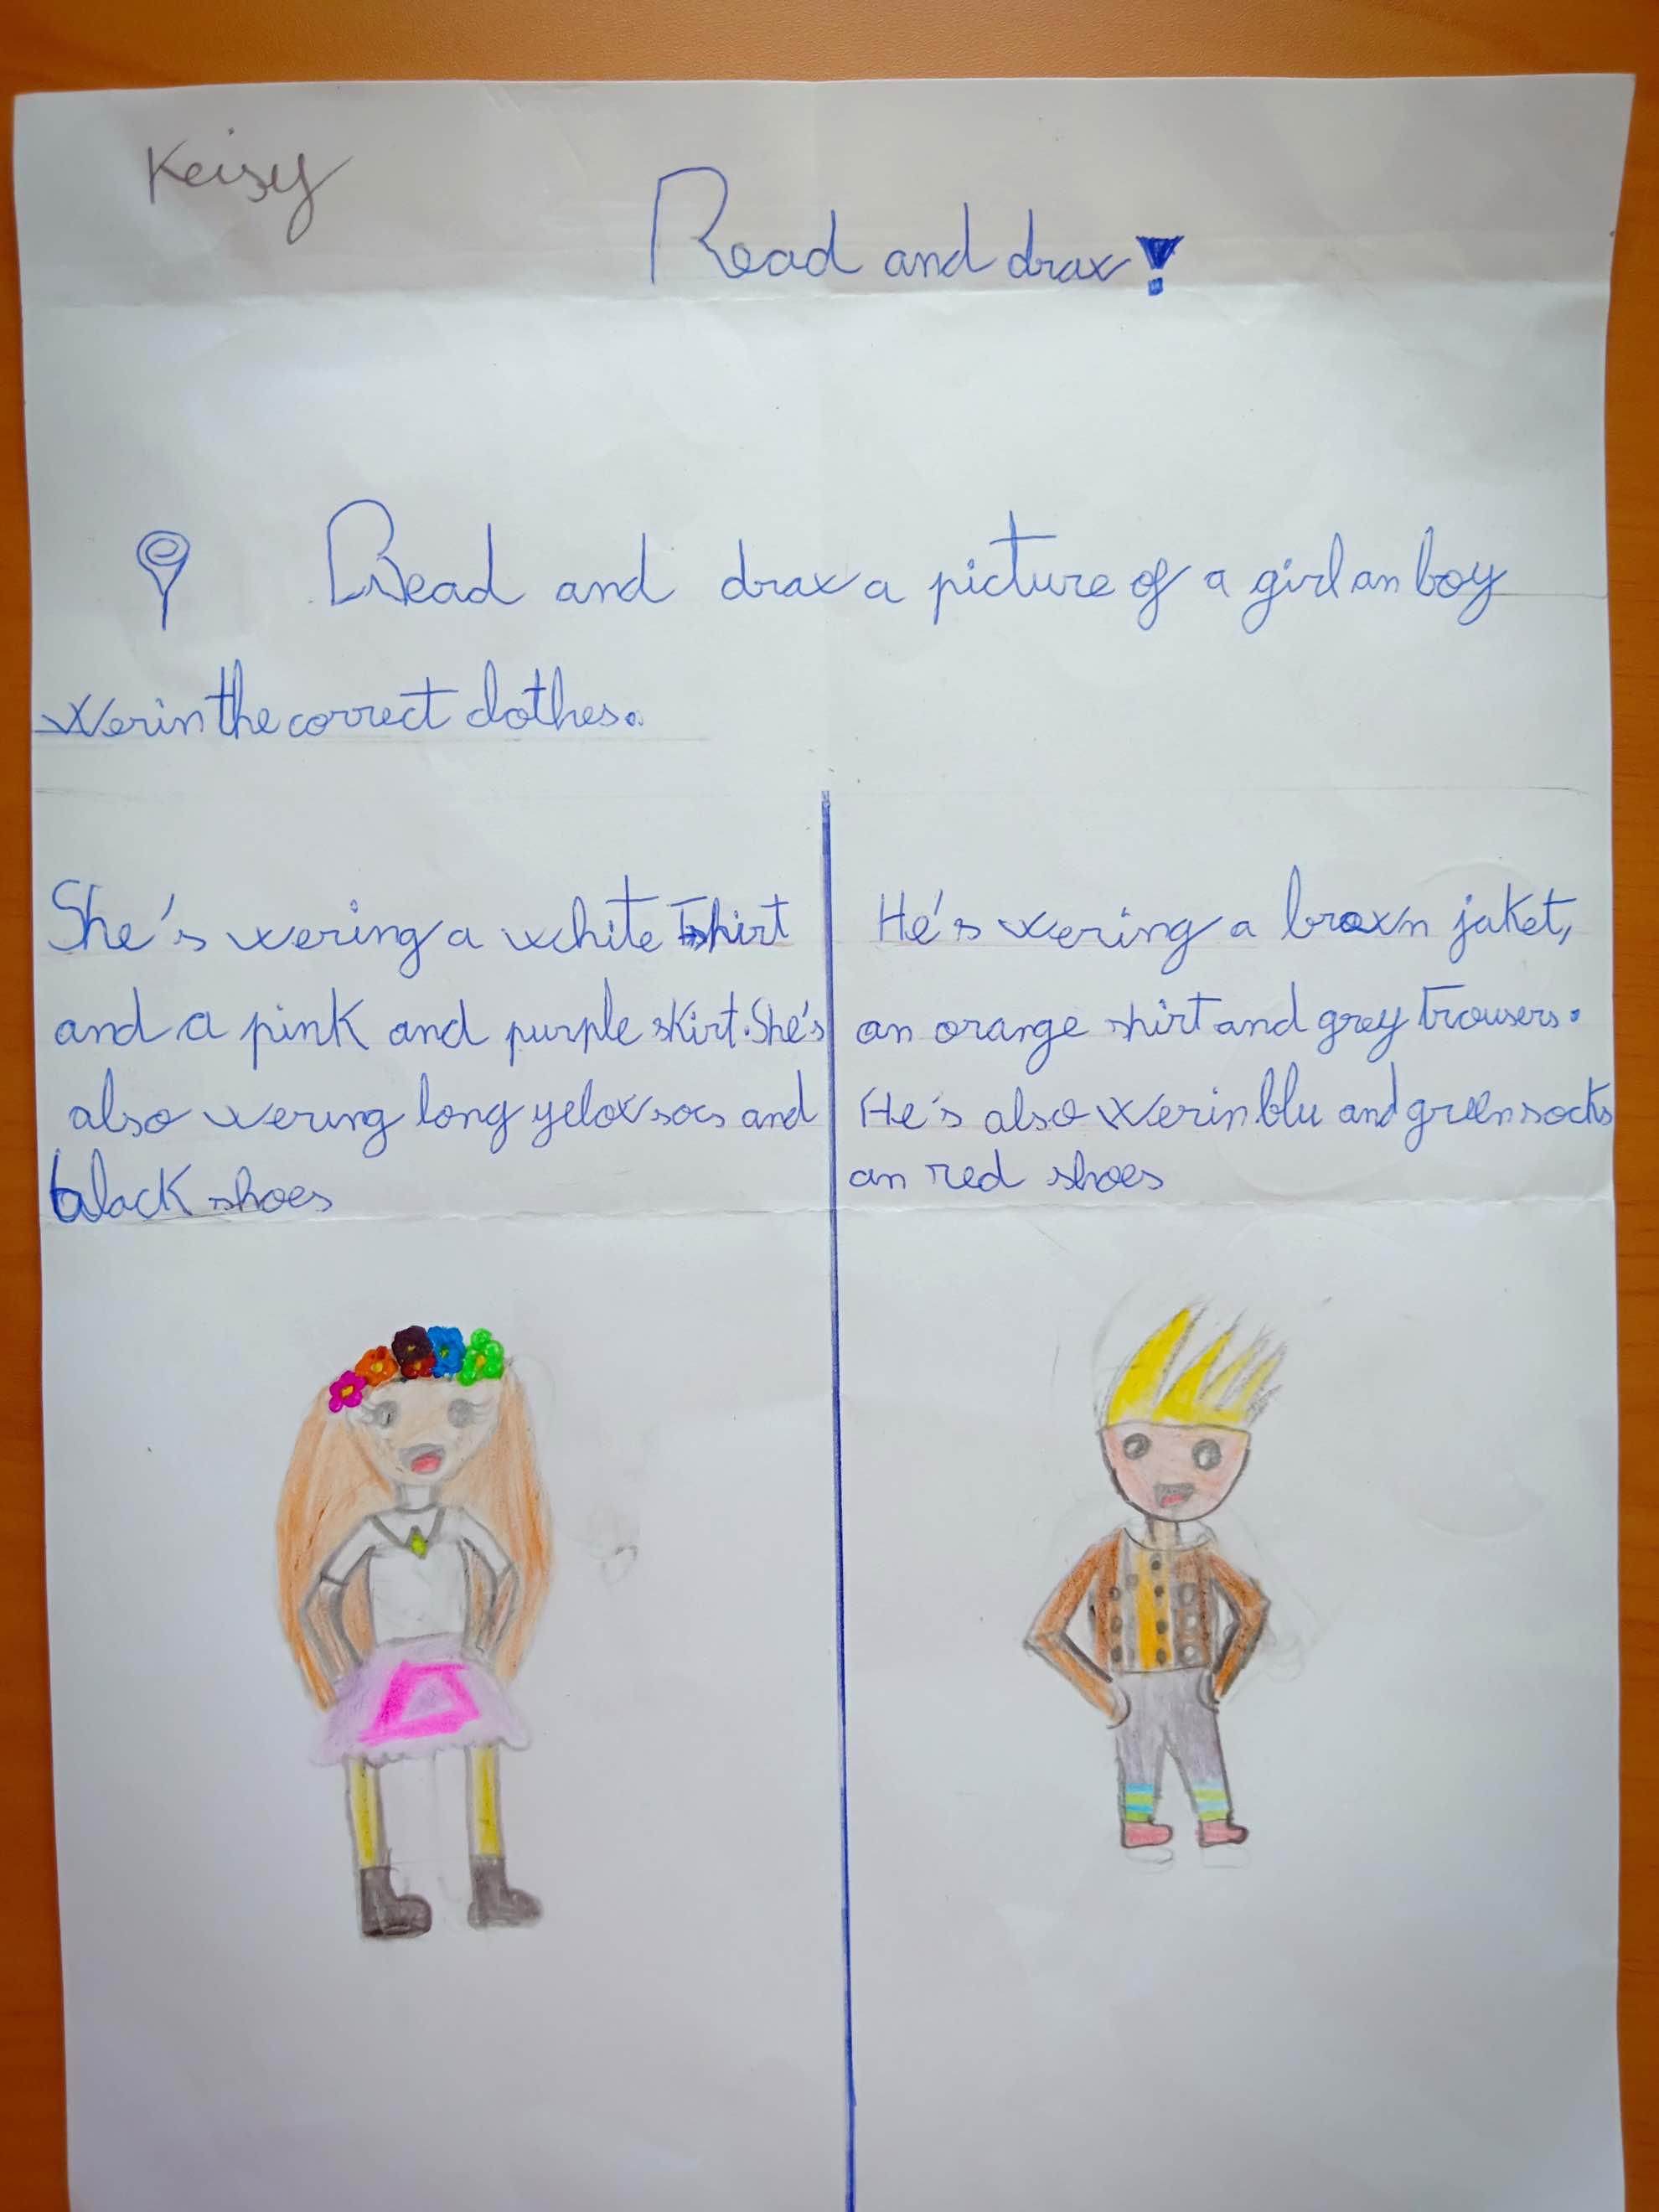 Keisy
Read and draw!
Read and draw a picture of a girl an boy
werin the correct clothes.
She's wering a white Tshirt
and a pink and purple skirt. She's
also wering long yelow socs and
black shoes
He's wering a brown jaket,
an orange shirt and grey trousers.
He's also werin blu and green socks
an red shoes